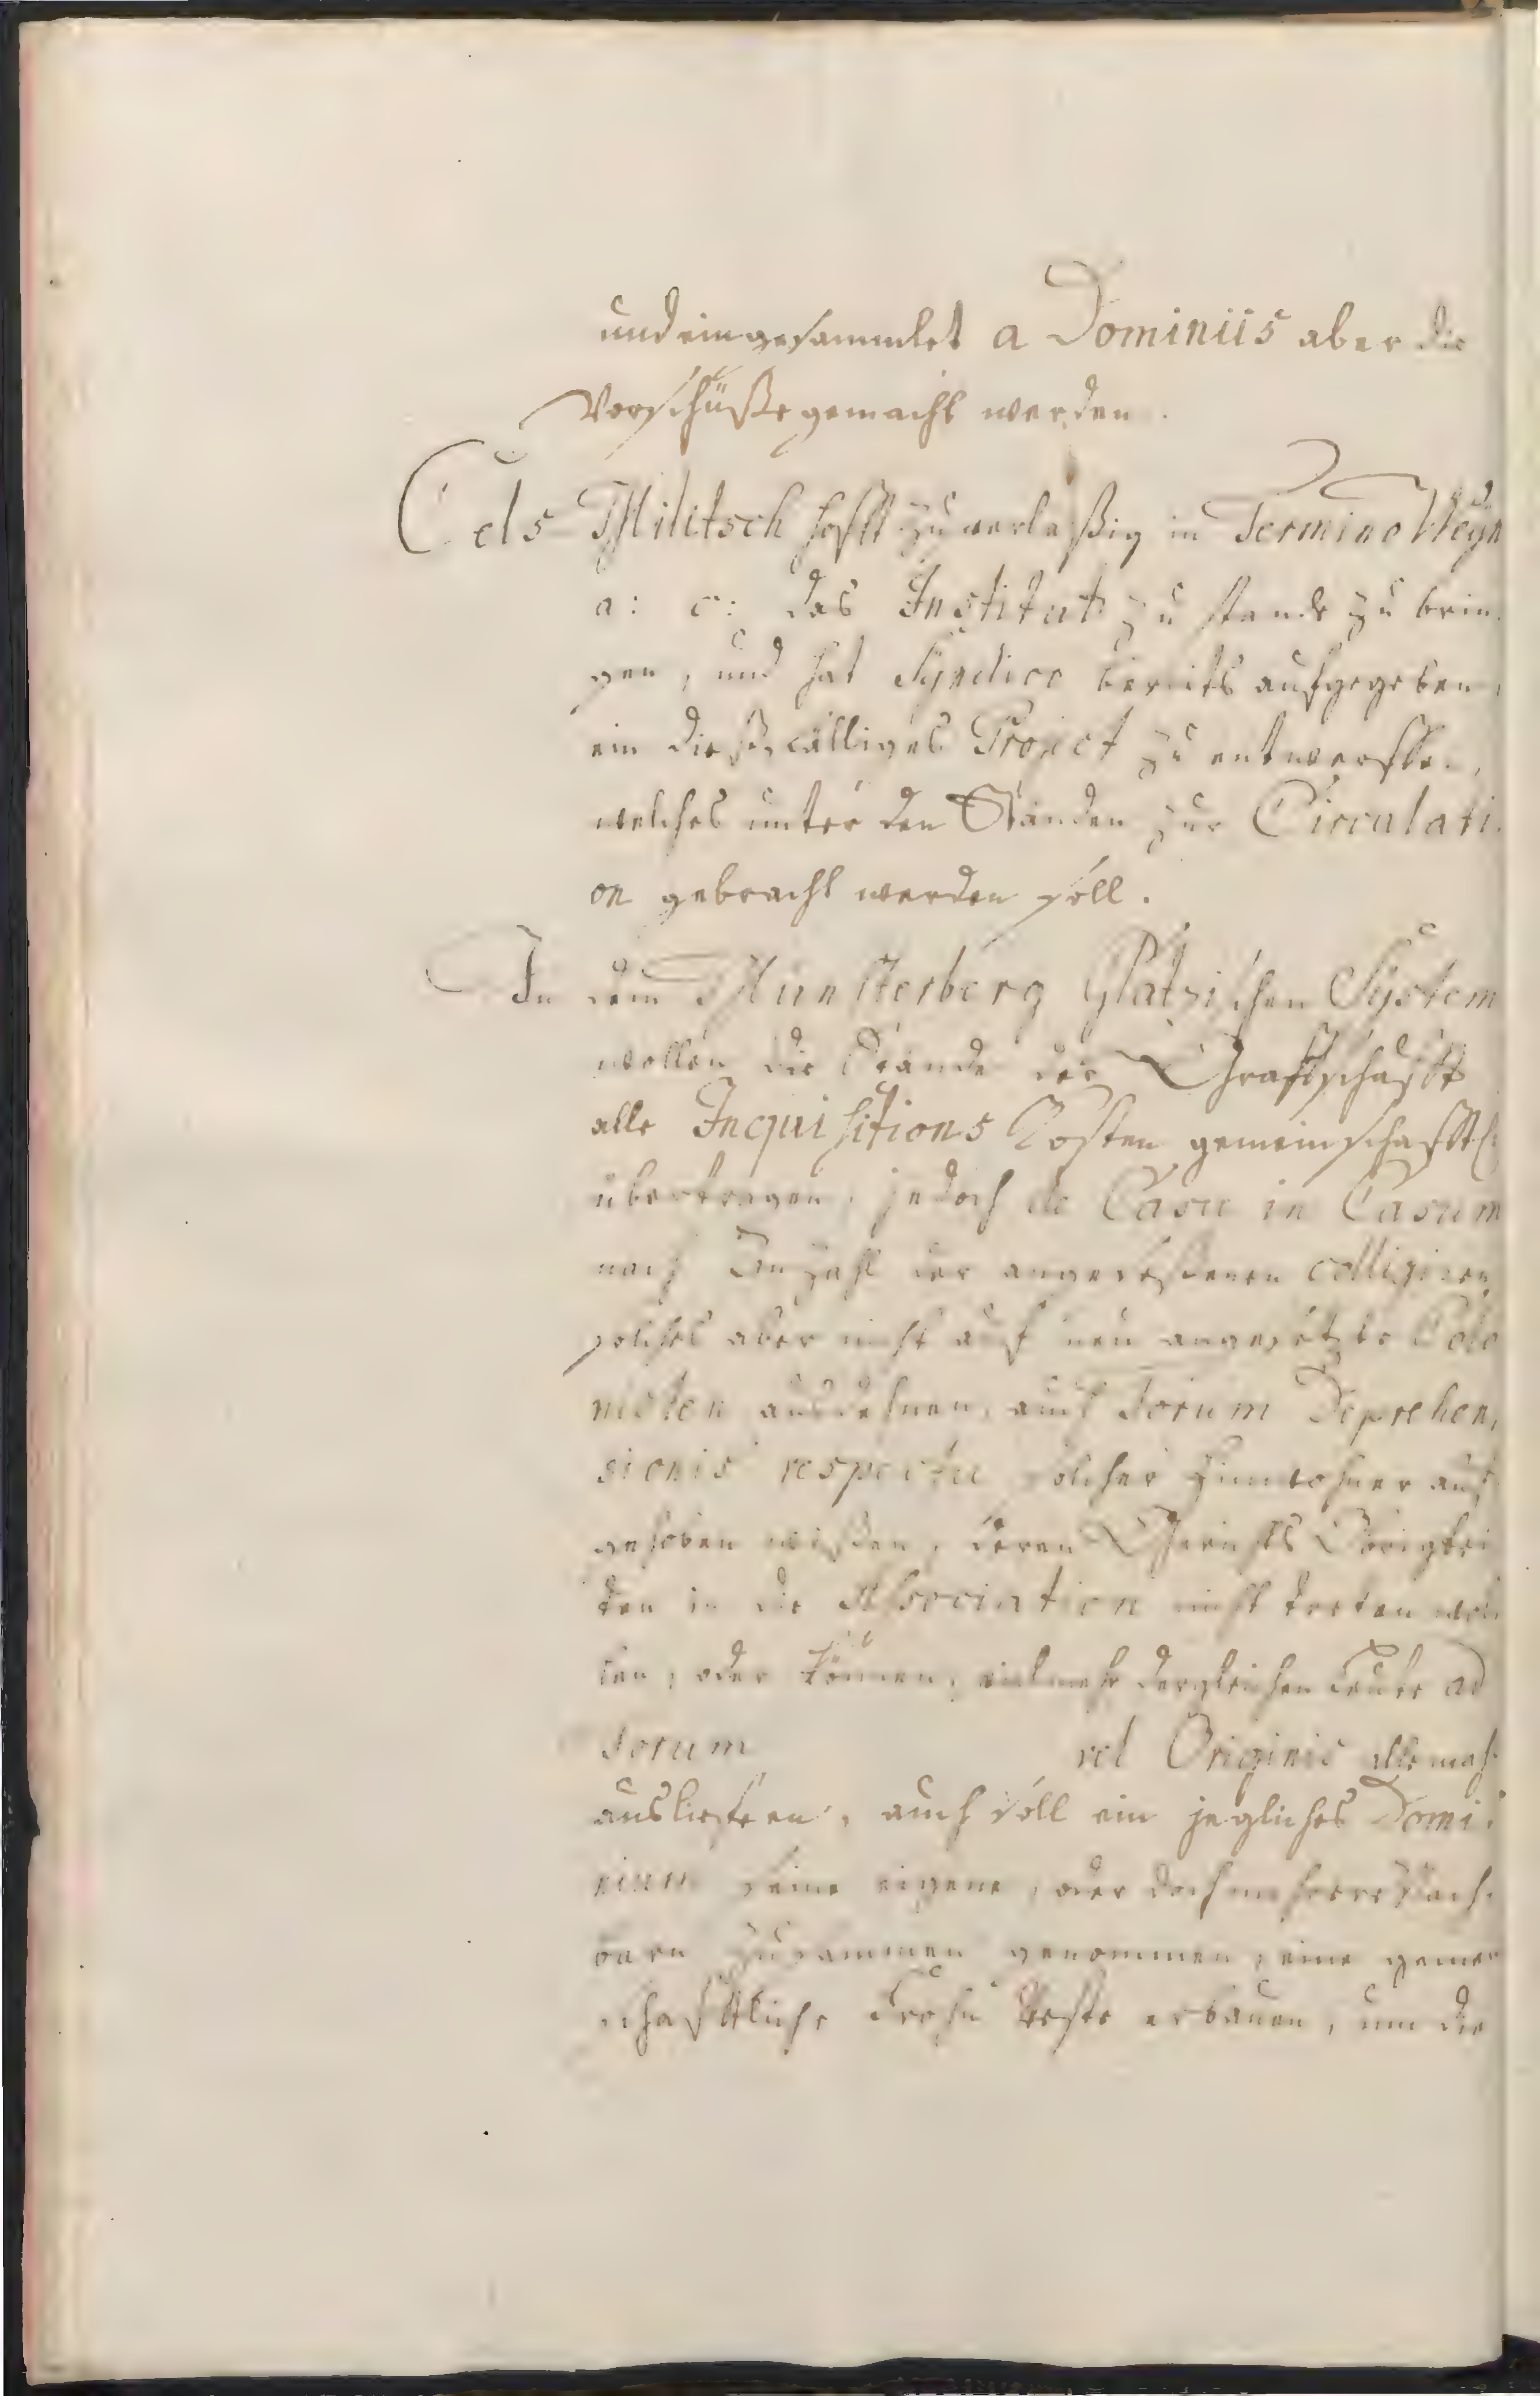 und eingesammlet a Dominiis aber die
Vorschüße gemacht werden.
Oels-Militsch hofft zuverläßig in Termino Weyn
a: c: das Institut zu stande zu brin
gen, und hat Syndico bereits aufgegeben,
ein dießfälliges Project zu entwerffen,
welches unter den Ständen zur Circulati
on gebracht werden soll.
In dem Münsterberg Glatzischen System
wollen die Stände der Graffschafft
alle Inquisitions Kosten gemeinschafftl:
übertragen, jedoch de Casu in Casum
nach Anzahl der angeseßenen colligiren,
solches aber nicht auf neu angesetzte Colo
nisten ausdehnen, auch Forum Deprehen,
sionis respectu solcher Einwohner auf
gehoben wißen, deren Gerichts Obrigkei
ten in die Association nicht treten wol
len, oder können, vielmehr dergleichen Leute ad
Forum vel Originis allemahl
ausliefern, auch soll ein jegliches Domi
nium seine eigene, oder doch mehrere Nach
barn zusammen genommen, eine gemein
schafftliche Frohn Veste erbauen, um die